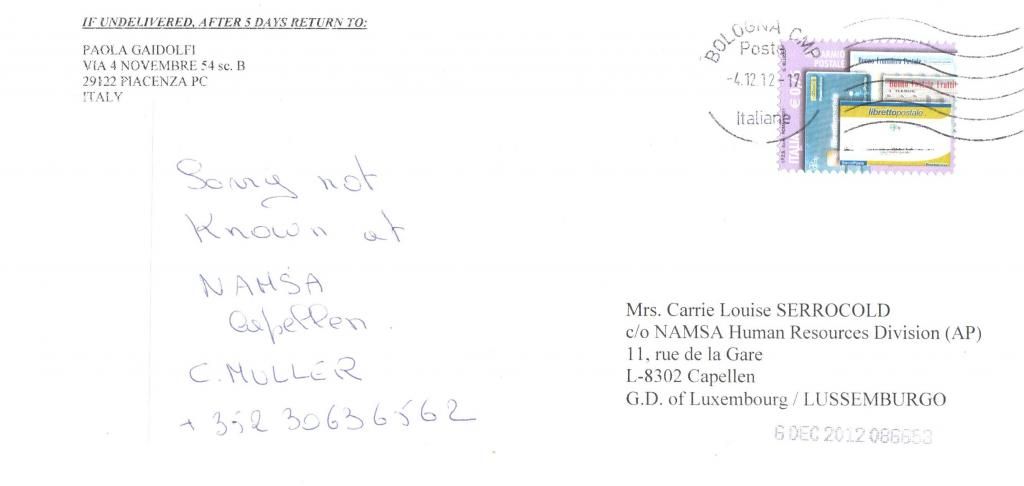 IF UNDELIVERED, AFTER 5 DAYS RETURN TO:
PAOLA GAIDOLFI
VIA 4 NOVEMBRE 54 sc. B
29122 PIACENZA PC
ITALY
BOLOGNA CMP
Poste
-4.12.12-17
Italiane
POSTALE
ITALIA € 0,
Buono Fruttifero Postale
Buono Postale Fruttif
librettopostale
Sorry not
Known at
NAMSA
Capellen.
C. MULLER
+ 352 30636562
Mrs. Carrie Louise SERROCOLD
c/o NAMSA Human Resources Division (AP)
11, rue de la Gare
L-8302 Capellen
G.D. of Luxembourg / LUSSEMBURGO
6 DEC 2012 086653